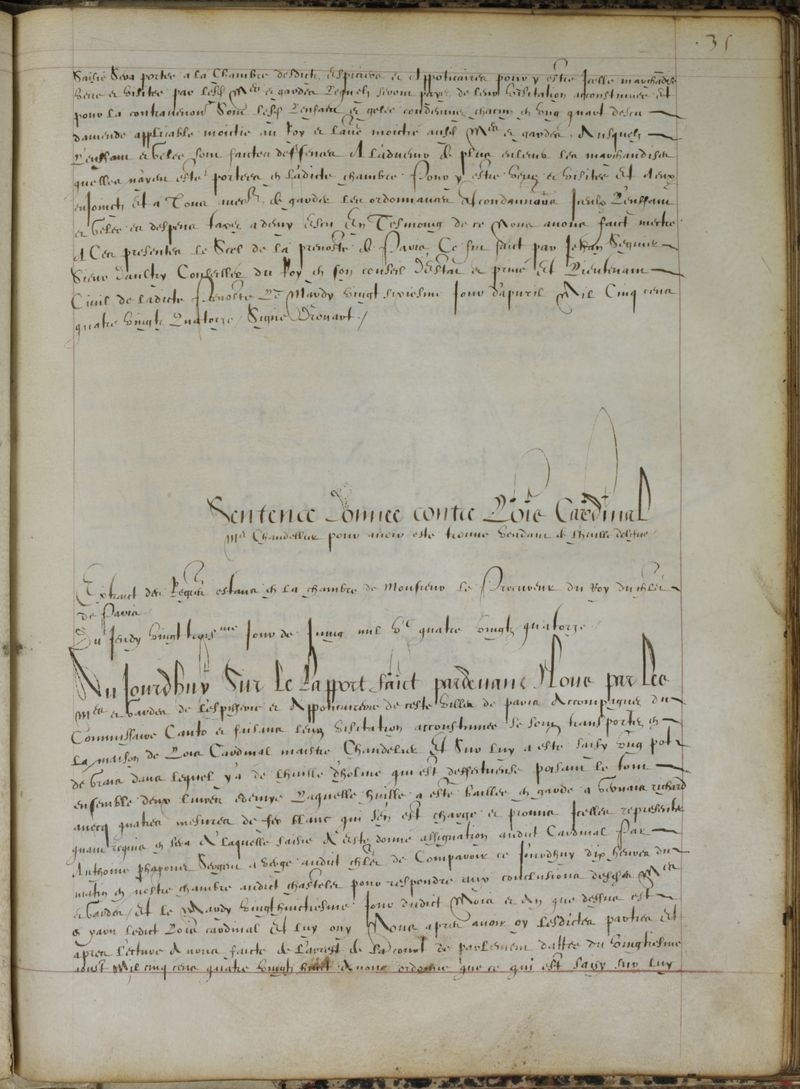 .35
saisie sera portee a la chambre desdictz espiciers et appoticaires pour y estre icelle marchandise
veue et visitee par lesd. Mes et gardes lesquelz seront payez de leur visitation accoustumee Et
pour la contravention sont lesd. Lenfant et gelee condemnez chacun en ung quart descu
damende applicable moictie au Roy et laue moictie ausd. Mes et gardes Ausquelz
Lenffant et Gelee sont faictes deffences A ladvenir de plus enlever les marchandises
quelles nayent esté portees en ladicte chambre pour y estre veuz et visitez Et a eux
enjoinct et a tous aues de garder les ordonnances Et condamnons lesdz Lenffant
et Gelee es despens taxez a demy escu En tesmoing de ce Nous avons faict mectre
A ces presentes le Scel de la prevosté de Paris Ce fut faict par Jehan Seguier
Sieur dautry Conseiller du Roy en son conseil destat et privé Et Lieutenant
Civil de ladicte Prevosté Le Mardy vingt sixiesme jour d'apvril Mil Cinq cens
quatre vingtz Quatorze / Signé Drouart /
Sentence donnee contre Loïs Cardinal
Me Chandellier pour avoir esté trouvé vendant de l'huille
Extraict des Regrez estans en la chambre de Monsieur le Procureur du Roy du chlet
de Paris
Du Jeudy vingt troysme jour de Juing mil Vc quatre vingtz quatorze
Aujourdhuy Sur le Rapport faict pardevant Nous par les
Mes et Gardes de lespicerie et Appoticairerie de ceste ville de paris Accompaignez du
Commissaire Canto et faisans leur visitation accoustumee se sont transportez en
La maison de Loïs Cardinal maistre Chandelier Et Sur luy a esté saisy ung pot
de Grais dans lequel y a de Lhuille dholive qui est deffectueuse poisant le tout
ensemble deux livres et demye Laquelle huille a esté baillee en garde a richard
avecq quatre mesures de fer blanc qui s'en est chargé et promis Icelles representer
quant requis en sera A laquelle saisie A esté donné assignation audict Cardinal Par
Anthoine Sergent a verge audict chlet de Comparoir ce jourdhuy dix heures du
matin en nostre chambre audict chastelet pour respondre aux conclusions desdz Mes
et Gardes / Et le Mardy vingthuictiesme jour dudict Mois et An que dessus est
comparu ledict Loïs Cardinal Et luy ouy Nous apres avoir oy lesdictes parties Et
apres lecture A nous faicte de larrest de la court de parlement datté du vingtiesme
aoust Mil cinq cens quatre vingtz huict Avons ordonné que ce qui est saisy sur luy